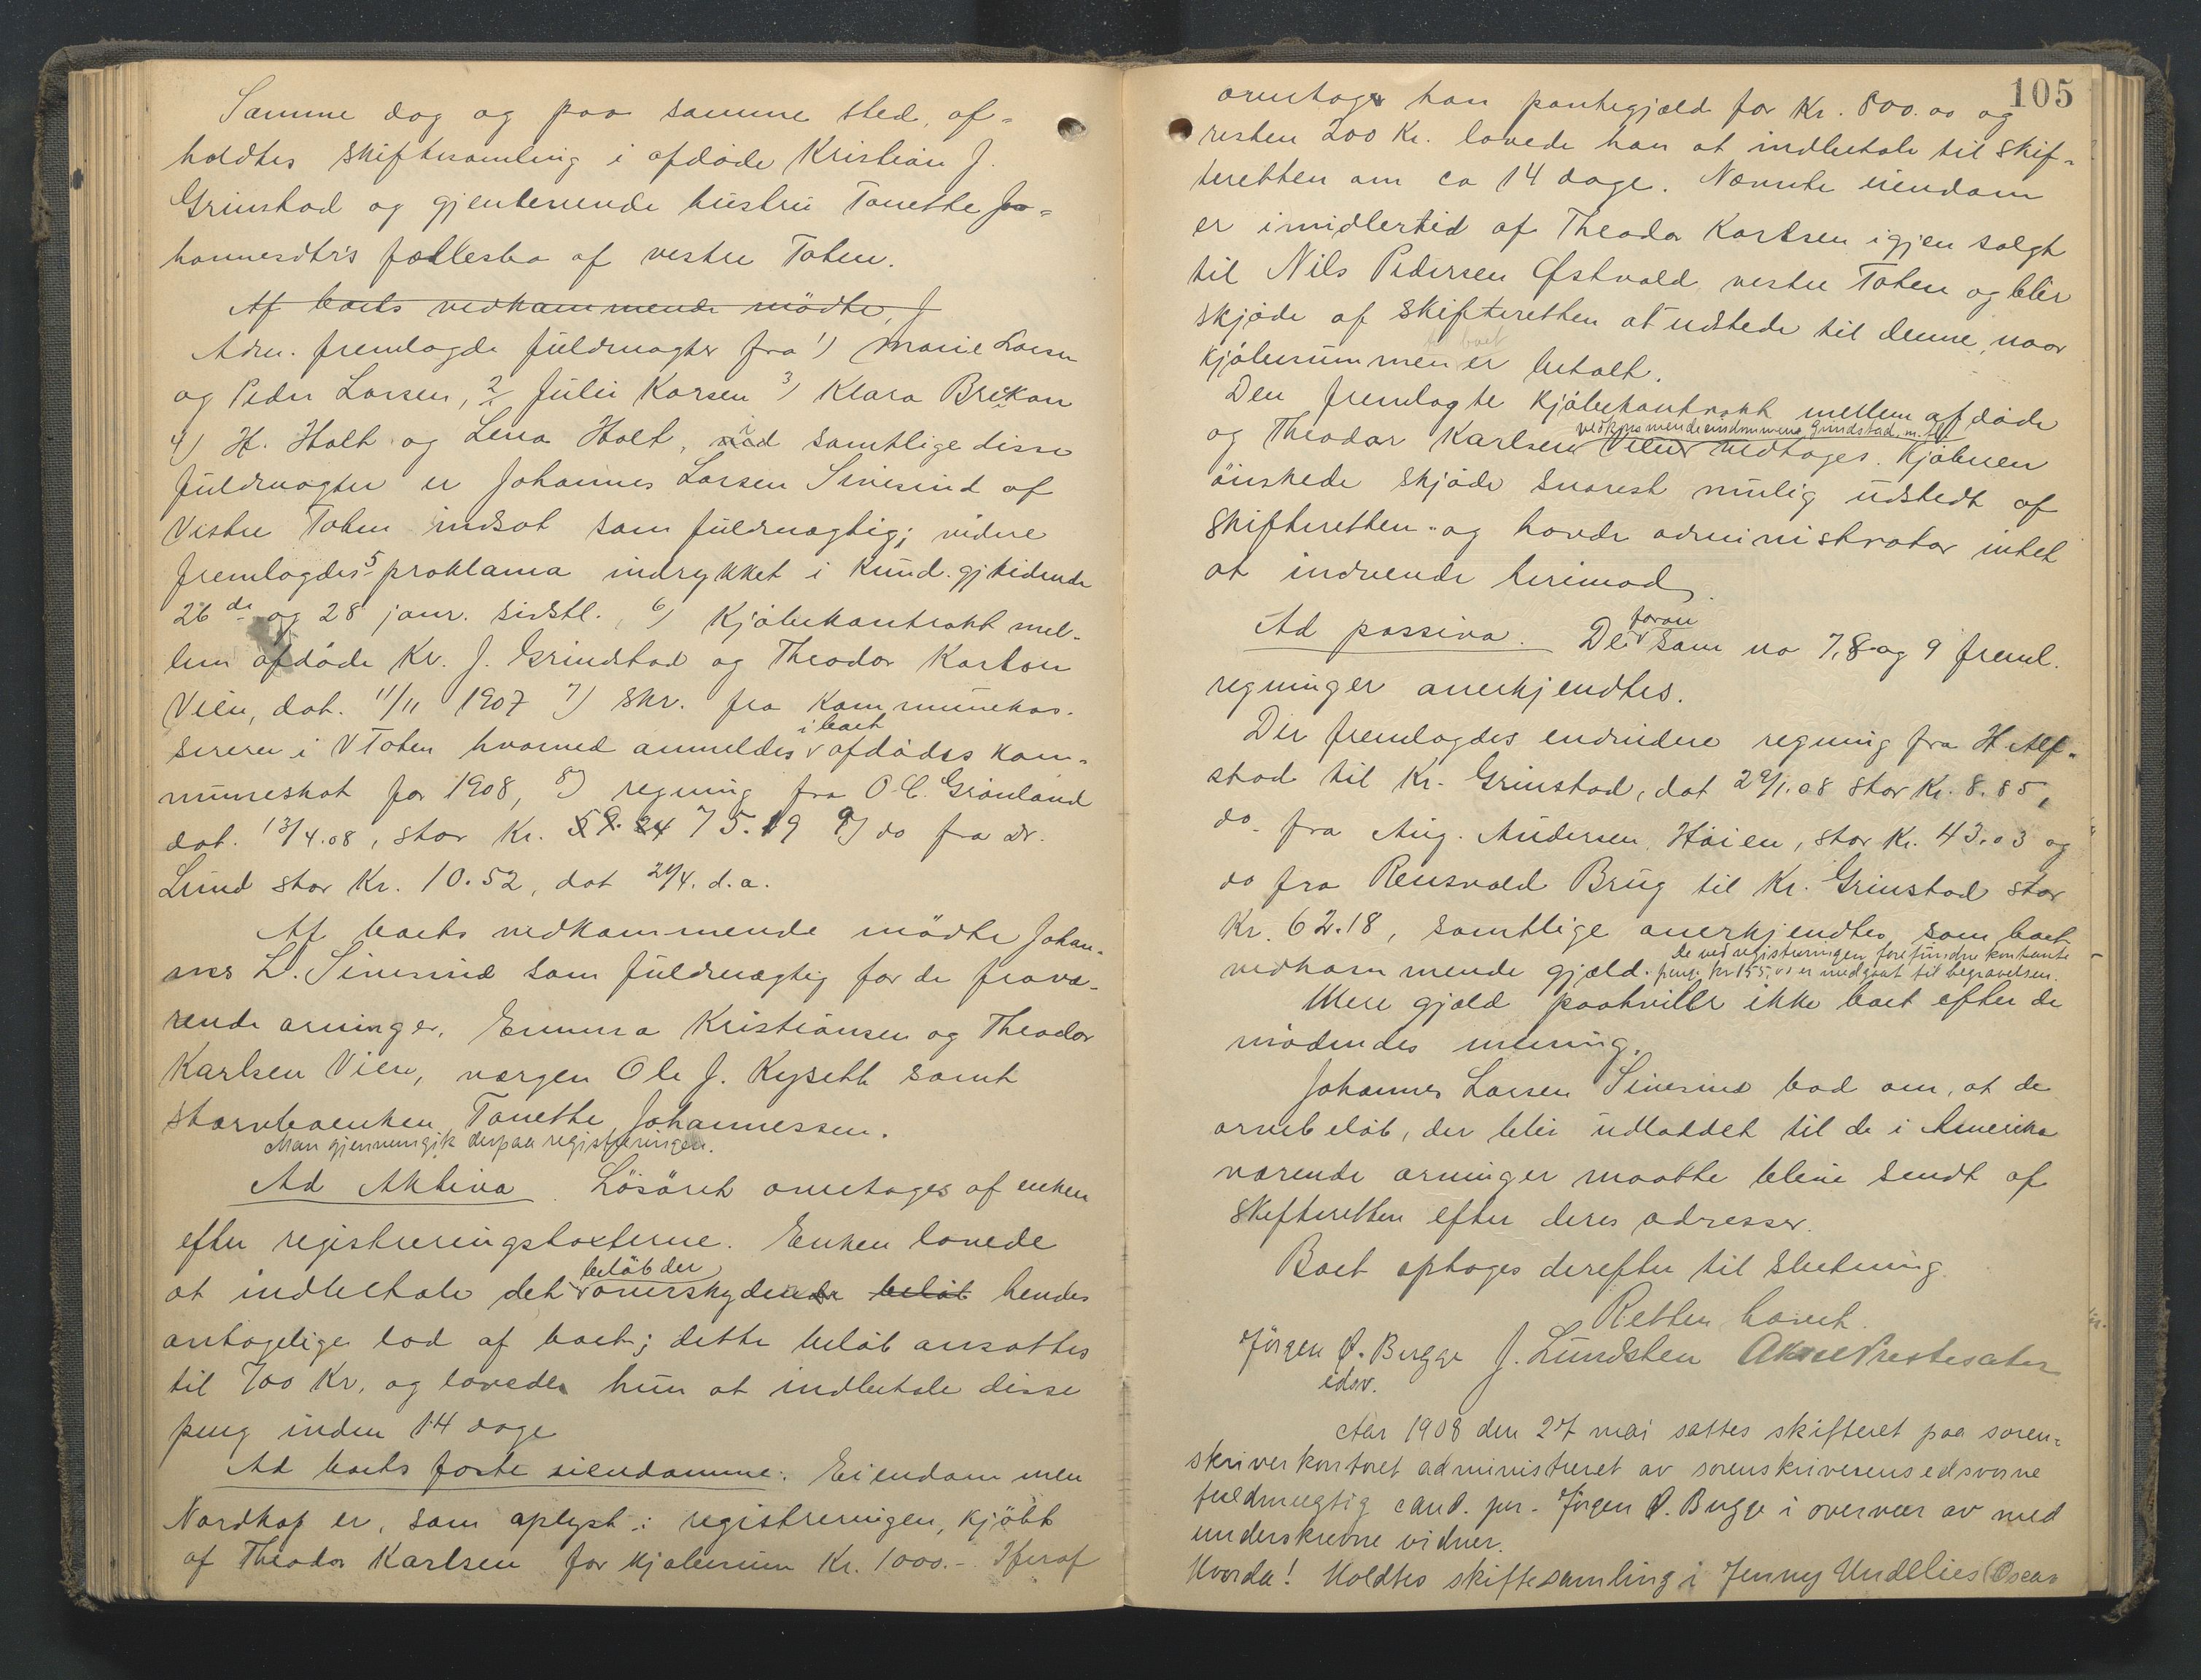 Samme dag og paa samme sted af-
holdtes skiftesamling i afdøde Kristian J.
Grinstad og gjenlevende hustru Tonette Jo-
hannesdtr's fællesbo af vestre Toten.
Af boets vedkommende mødte, J
Adm. fremlagde fuldmagter fra 1) Marie Larsen
og Peder Larsen, 2/ Julie Karsen 3) Klara Brekan
4) H. Holt og Lena Holt, i samtlige disse
fuldmagter er Johannes Larsen Sivesind af
Vestre Toten indsat som fuldmægtig; videre
fremlagdes 5 proklama indrykket i Kund.gjtidende
26de og 28 janr. sidstl. 6) Kjøbekontrakt mel-
lem afdøde Kr. J. Grindstad og Theodor Karlsen
Vien, dat. 11/11 1907 7) Skr. fra Kommunekas-
sereren i VToten hvorved anmeldes i boet afdødes kom-
muneskat for 1908, 8) regning fra O. C. Grønland
dat. 13/4.08, stor Kr. 59.24 75.19 9) do fra dr.
Lund stor Kr. 10.52, dat 24/4. d.a.
Af boets vedkommende mødte Johan-
nes L. Sivesind som fuldmægtig for de fravæ-
rende arvinger, Emma Kristiansen og Theodor
Karlsen Vien, værgen Ole J. Kyseth samt
stervboenken Tonette Johannessen.
Man gjennemgik derpaa registreringen.
Ad Aktiva. Løsøret overtages af enken
efter registreringstaxterne. Enken lovede
beløb der
at indbetale det overskydende beløb hendes
antagelige lod af boet; dette beløb ansattes
til 700 Kr, og lovede hun at indbetale disse
peng inden 14 dage
Ad boets faste eiendomme: Eiendommen
Nordkap er, som oplyst i registreringen, kjøbt
af Theodor Karlsen for kjøbesum Kr. 1000.- Heraf
105
overtager han pantegjæld for Kr. 800.00 og
resten 200 Kr. lovede han at indbetale til skif-
teretten om ca 14 dage. Nævnte eiendom
er imidlertid af Theodor Karlsen igjen solgt
til Nils Pedersen Østvold, vestre Toten og blir
skjøde af skifteretten at udstede til denne, naar
til boet
kjøbesummen er betalt.
Den fremlagte kjøbekontrakt mellem afdøde
vedkommende eindommene Grindstad m. fl.
og Theodor Karlsen Vien vedtoges. Kjøberen
ønskede skjøde snarest mulig udstedt af
skifteretten og havde administrator intet
at indvende herimod.
Ad passiva. De foran som no 7, 8 og 9 freml.
regninger anerkjendtes.
Der fremlagdes endvidere regning fra H. Alf-
stad til Kr. Grinstad, dat 29/1.08 stor Kr. 8.85,
do. fra Aug. Andersen, Høien, stor Kr. 43.03 og
do fra Rensvold Brug til Kr. Grinstad stor
Kr. 62.18, samtlige anerkjendtes som boet
vedkommende gjæld. De ved registreringen forefundne kontante
penge kr 155,00 er medgaat til begravelsen.
Mere gjæld paahviler ikke boet efter de
mødendes mening.
Johannes Larsen Sivesind bad om, at de
arvebeløb, der blir udloddet til de i Amerika
værende arvinger maatte blive sendt af
skifteretten efter deres adresser.
Boet optoges derefter til slutning.
Retten hævet.
Jørgen Ø. Bugge J. Lundsten Aksel Prestesæter
edsv.
Aar 1908 den 27 mai sattes skifteret paa soren-
skriverkontoret administreret av sorenskriverens edsvorne
fuldmægtig cand. jur. Jørgen Ø. Bugge i overvær av med
underskrevne vidner.
Hvorda! Holdtes skiftesamling i Jenny Undelies (Oscar